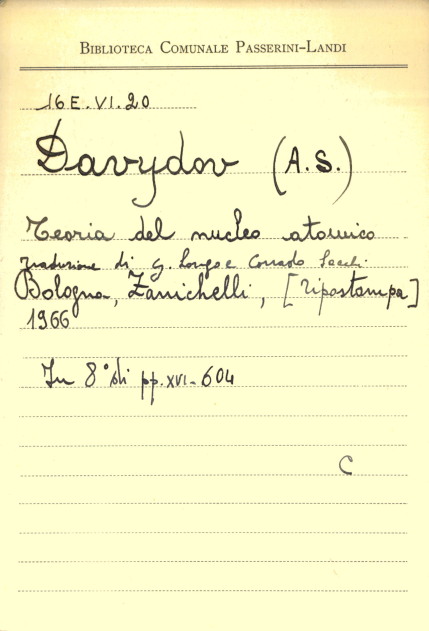 BIBLIOTECA COMUNALE PASSERINI-LANDI
16 E. VI. 20
Davydov (A.S.)
Teoria del nucleo atomico
traduzione di G. Longo e Corrado Sacchi
Bologna, Zanichelli, [ristampa]
1966
In 8° di pp. XVI-604
C